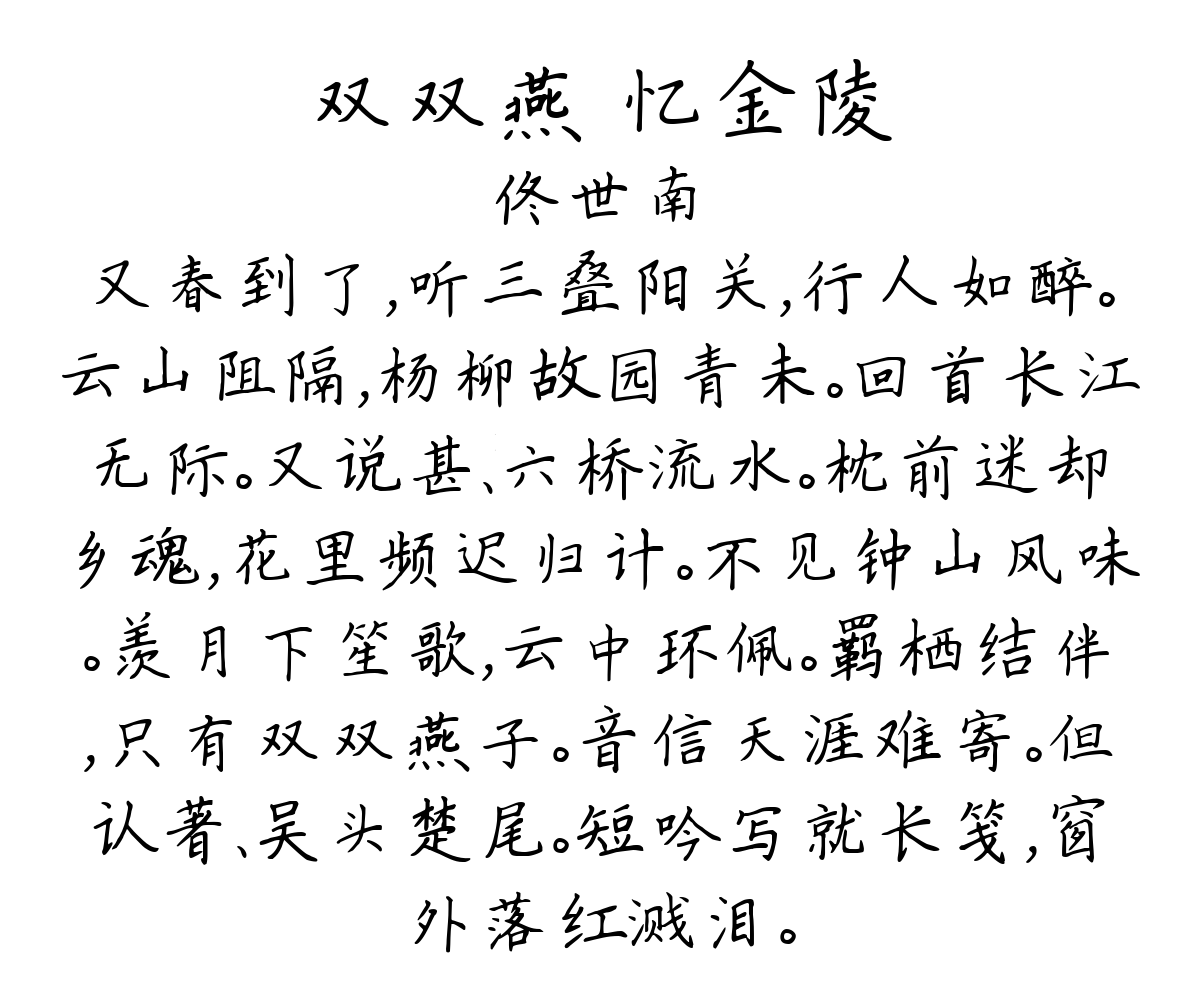 双双燕 忆金陵
佟世南
又春到了,听三叠阳关,行人如醉。
云山阻隔,杨柳故园青未。回首长江
无际。又说甚、六桥流水。枕前迷却
乡魂,花里频迟归计。不见钟山风味
。羡月下笙歌,云中环佩。羁栖结伴
,只有双双燕子。音信天涯难寄。但
认著、吴头楚尾。短吟写就长笺,窗
外落红溅泪。